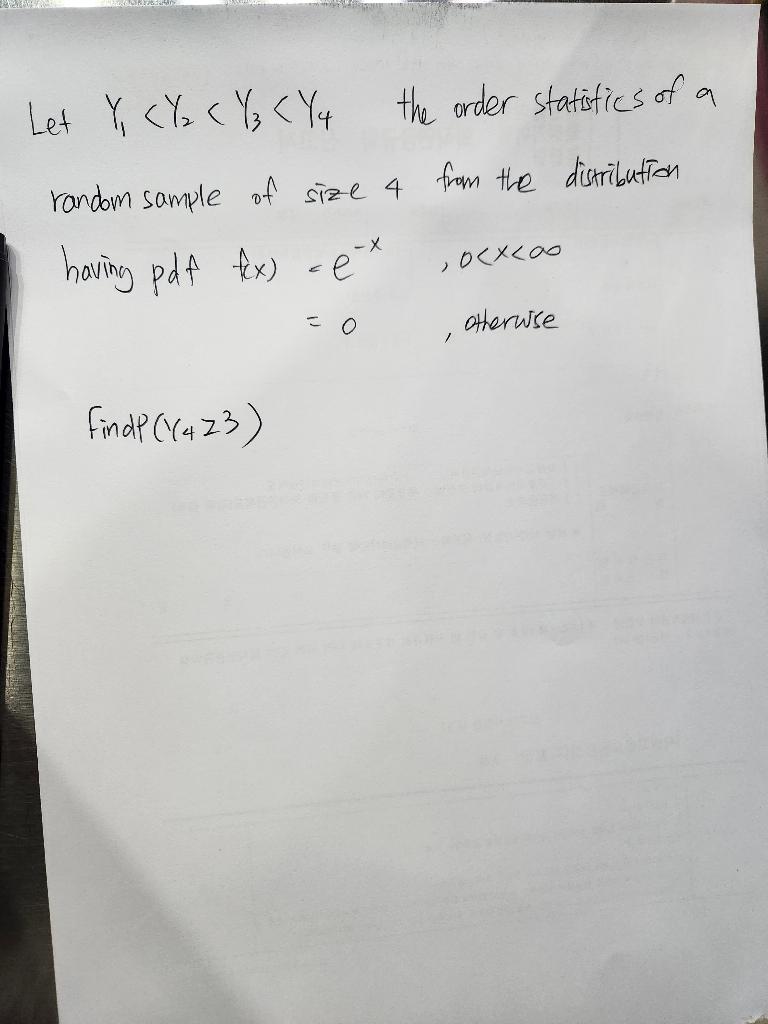 Let Y₁ < Y₂ < Y₃ < Y₄ the order statistics of a
random sample of size 4 from the distribution
having pdf f(x) = e⁻ˣ , 0<x<∞
= 0 , otherwise
find P(Y₄ ≥ 3)